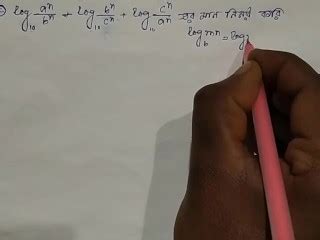 log₁₀ aⁿ/bⁿ + log₁₀ bⁿ/cⁿ + log₁₀ cⁿ/aⁿ এর মান নির্ণয় করো
log_b mn = log